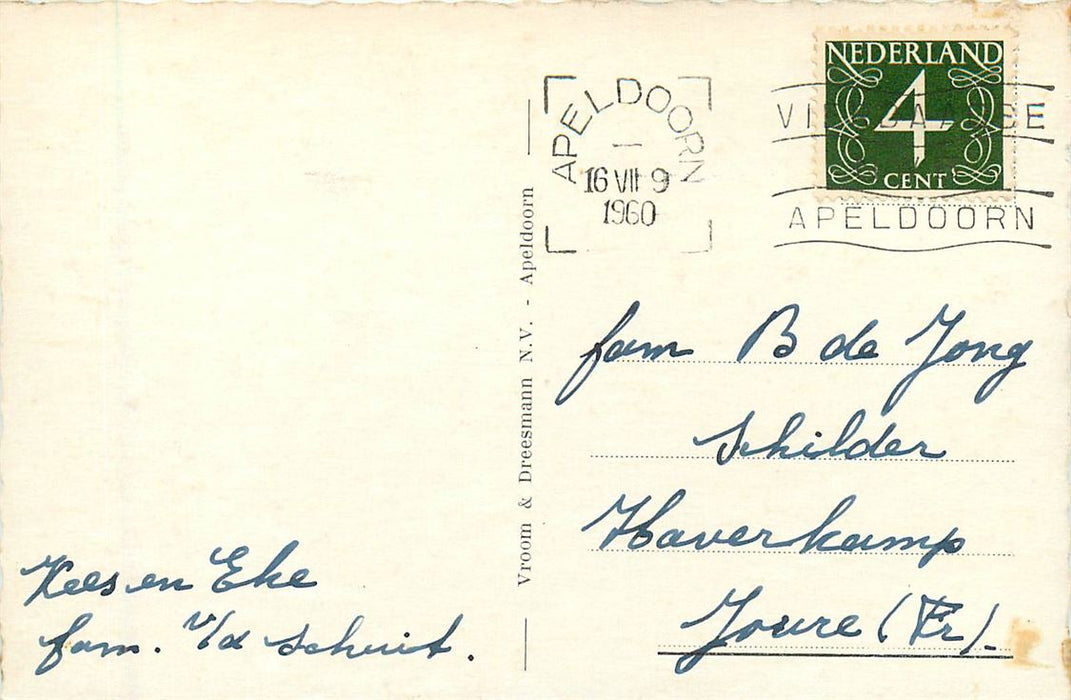 NEDERLAND
4
CENT
APELDOORN
16 VII 9
1960
APELDOORN
Vroom & Dreesmann N.V. - Apeldoorn
fam B de Jong
Schilder
Haverkamp
Joure (Fr).
Kees en Eke
fam. v/d Schuit.